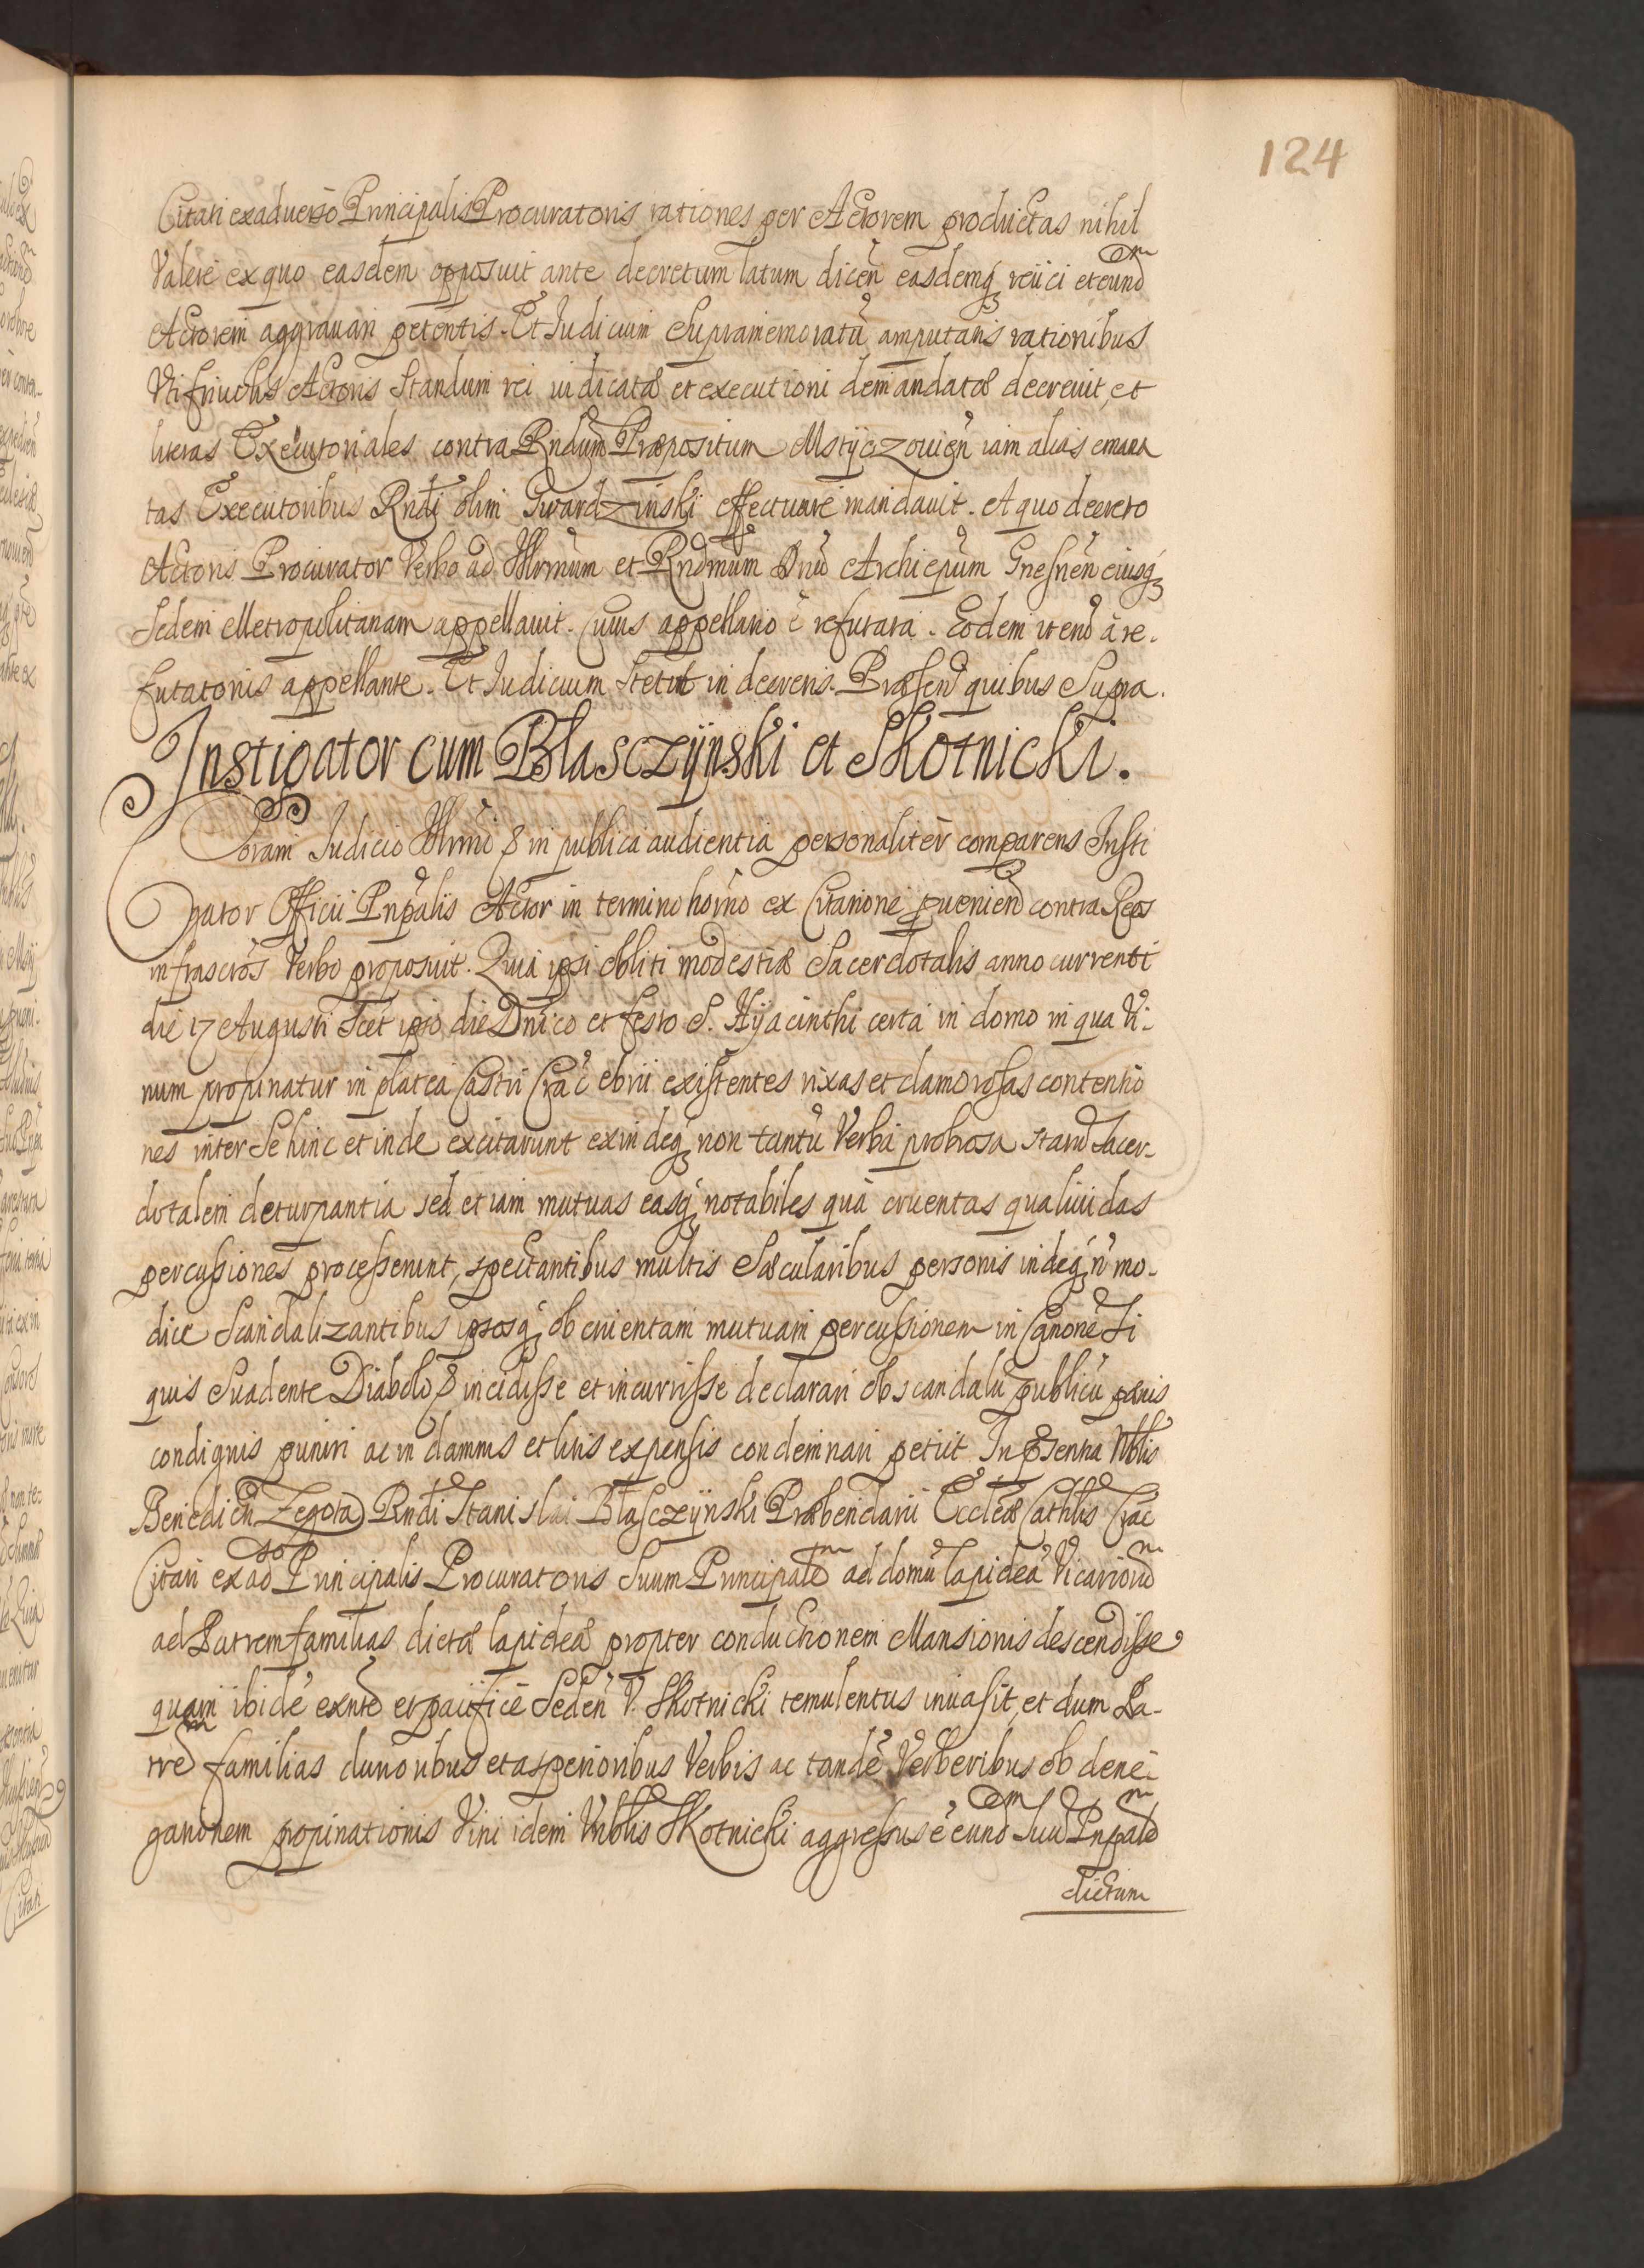 124
Citati ex aduerso Principalis Procuratoris rationes per Actorem productas nihil
Valere ex quo easdem opposuit ante decretum latum dicen̄ easdemq́ reiici et eundem
Actorem aggrauari petentis. Et Iudicium Supramemoratū amputatis rationibus
Vti friuolis Actoris Standum rei iudicatæ et executioni demandatæ decreuit, et
literas Executoriales contra Rndum Præpositum Mstyczouien̄ iam alias emana
tas Executoribus Rndi olim Gwardzinski effectuare mandauit. A quo decreto
Actoris Procurator Verbo ad Illrmum et Rndmum Dnū Archiepūm Gnesnen̄ eiusq́
Sedem Metropolitanam appellauit. Cuius appellatio ē refutata. Eodem itend à re-
futatoris appellante. Et Iudicium Stetit in decretis. Præsend quibus Supra.
Instigator cum Blasczÿnski et Skotnicki.
Coram Iudicio Illrmi & in publica audientia personalitèr comparens Insti
gator Officii Pnpalis Actor in termino horno ex Citatione pueniend contra Reos
infrascros Verbo proposuit. Quia ipsi obliti modestiæ Sacerdotalis anno currenti
die 17 Augusti Scet ipso die Dnico et festo S. Hyacinthi certa in domo in qua Vi-
num propinatur in platea Castri Crac̄ ebrii existentes rixas et clamorosas contentio
nes inter Se hinc et inde excitarunt exindeq́ non tantū Verba probrosa statū Sacer-
dotalem deturpantia sed etiam mutuas easq́ notabiles quà cruentas qua liuidas
percussiones processerunt, spectantibus multis Sæcularibus personis indeq́ n̄ mo-
dice Scandalizantibus ipsosq́ ob cruentam mutuam percussionem in Canone Si
quis Suadente Diabolo & incidisse et incurrisse declarari ob scandalū publicū pænis
condignis puniri ac in damnis et litis expensis condemnari petiit. In psentia Vblis
Benedicti Zegota Rndi Stanislai Blasczÿnski Præbendarii Eccleæ Cathlis Crac
Citati ex adso Principalis Procuratoris Suum Principalem ad domū lapideā Vicariorum
ad Patrem familias dictæ lapideæ propter conductionem Mansionis descendisse
quam ibidē exnte et pacificè Seden̄ V. Skotnicki temulentus inuasit, et dum Pa-
trem familias durioribus et asperioribus Verbis ac tandē Verberibus ob dene-
gationem propinationis Vini idem Vnblis Skotnicki aggressus ē eundem Suū Pnpalem
dictum